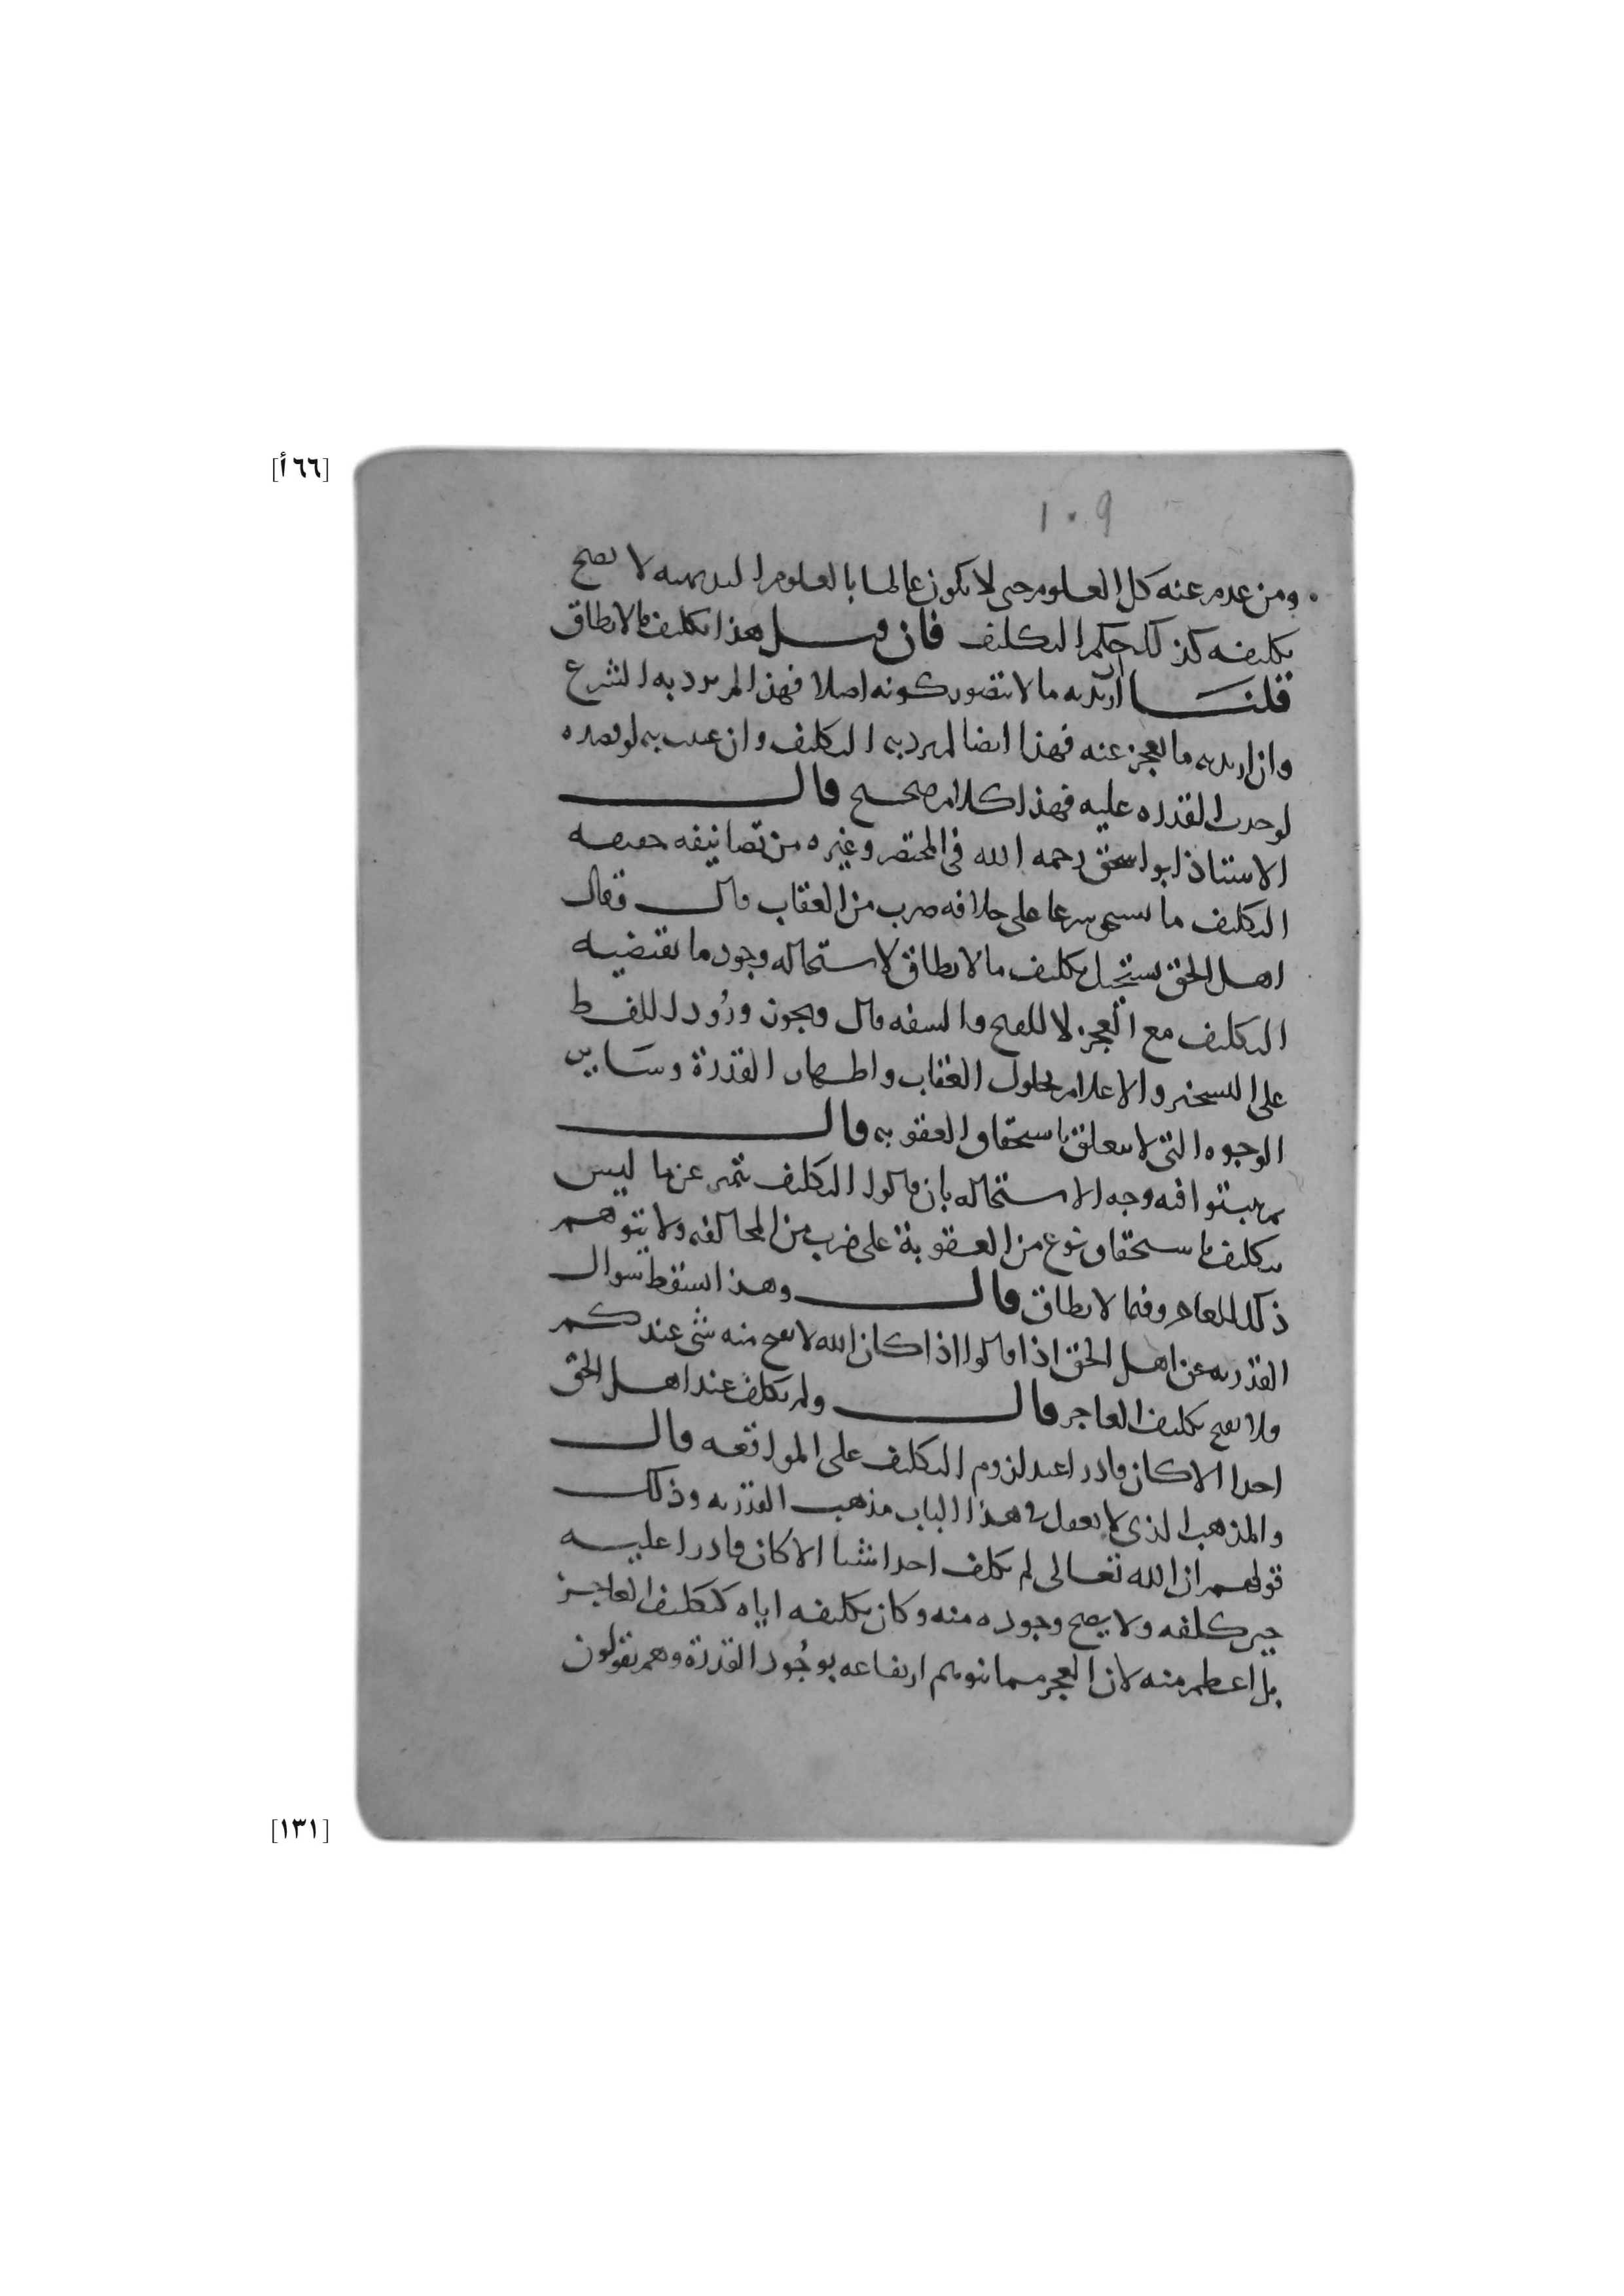 [٦٦ أ]
١٠٩
ومن عدم عنه كل العلوم حتى لا يكون عالما بالعلوم البديهية لا يصح
تكليفه كذلك حكم التكليف فان قيل هذا تكليف ما لا يطاق
قلنا ان اريد به ما لا يتصور كونه اصلا فهذا لم يرد به الشرع
وان اريد به ما يعجز عنه فهذا ايضا لم يرد به التكليف وان عنيت به لو قصده
لوجدت القدرة عليه فهذا كلام صحيح قال
الاستاذ ابو اسحق رحمه الله في المختصر وغيره من تصانيفه حقيقة
التكليف ما يستحق شرعا على خلافه ضرب من العقاب قال فقال
اهل الحق يستحيل تكليف ما لا يطاق لاستحالة وجود ما يقتضيه
التكليف مع العجز لا للقبح والسفه قال ويجوز ورُود اللفظ
على التسخير والاعلام بحلول العقاب واظهار القدرة وسائر
الوجوه التي لا تتعلق باستحقاق العقوبة قال
ثم يبينوا فيه وجه الاستحالة بان قالوا التكليف يتميز عن ما ليس
بتكليف باستحقاق نوع من العقوبة على ضرب من المخالفة ولا يتوهم
ذلك للعاجز وفيما لا يطاق قال وهذا يسقط سوال
القدرية عن اهل الحق اذا قالوا اذا كان الله لا يقبح منه شي عندكم
ولا يقبح تكليف العاجز قال ولم يكلف عند اهل الحق
احدا الا كان قادرا عند لزوم التكليف على الموافقة قال
والمذهب الذي لا يعقل في هذا الباب مذهب القدرية وذلك
قولهم ان الله تعالى لم يكلف احدا شيا الا كان قادرا عليه
حين كلفه ولا يصح وجوده منه وكان تكليفه اياه كتكليف العاجز
بل اعظم منه لان العجز مما يتوهم ارتفاعه بوجُود القدرة وهم يقولون
[١٣١]